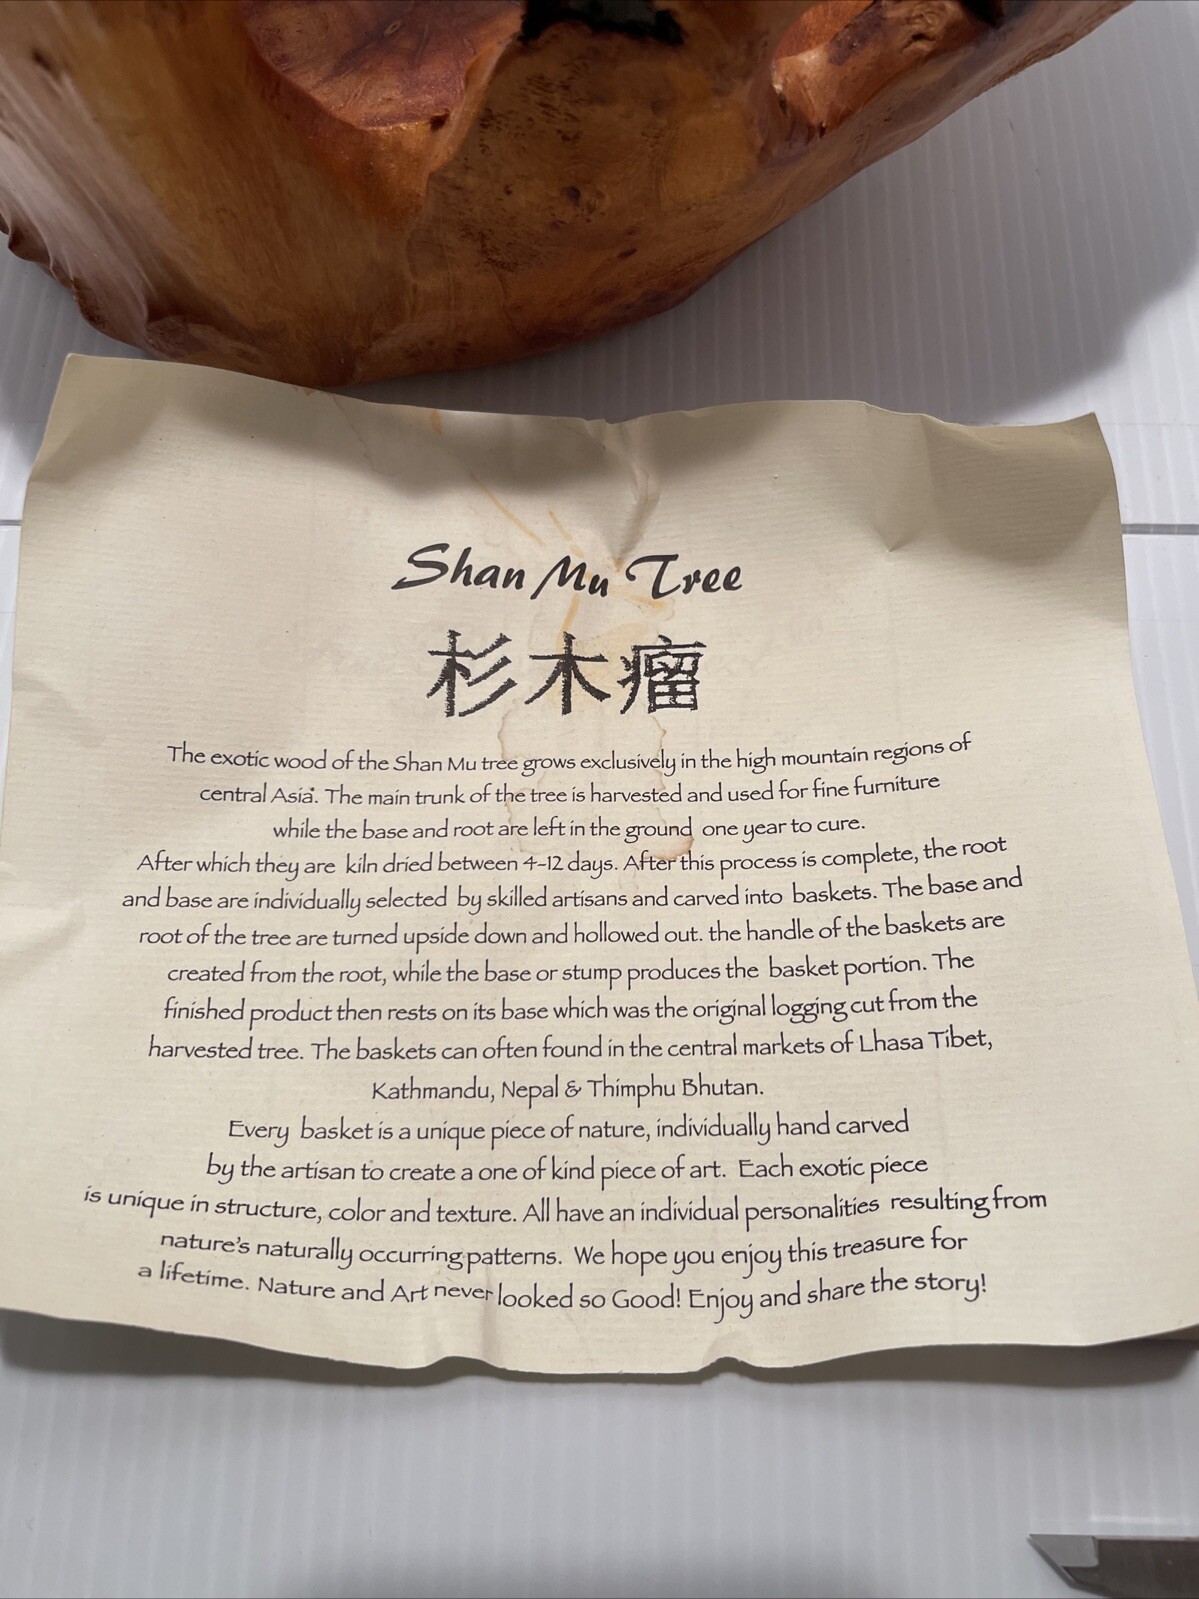 Shan Mu Tree
杉木瘤
The exotic wood of the Shan Mu tree grows exclusively in the high mountain regions of
central Asia. The main trunk of the tree is harvested and used for fine furniture
while the base and root are left in the ground one year to cure.
After which they are kiln dried between 4-12 days. After this process is complete, the root
and base are individually selected by skilled artisans and carved into baskets. The base and
root of the tree are turned upside down and hollowed out. the handle of the baskets are
created from the root, while the base or stump produces the basket portion. The
finished product then rests on its base which was the original logging cut from the
harvested tree. The baskets can often found in the central markets of Lhasa Tibet,
Kathmandu, Nepal & Thimphu Bhutan.
Every basket is a unique piece of nature, individually hand carved
by the artisan to create a one of kind piece of art. Each exotic piece
is unique in structure, color and texture. All have an individual personalities resulting from
nature's naturally occurring patterns. We hope you enjoy this treasure for
a lifetime. Nature and Art never looked so Good! Enjoy and share the story!